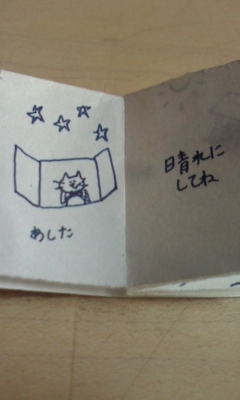 あした
晴れに
してね